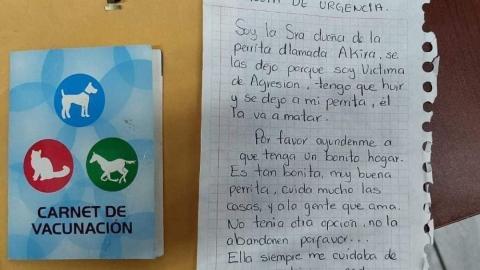 CARNET DE
VACUNACIÓN
DE URGENCIA.
Soy la Sra dueña de la
perrita dlamada Akira, se
las dejo porque soy Victima
de Agresion, tengo que huir
y se dejo a mi perrita, él
la va a matar.
Por favor ayundenme a
que tenga un bonito hogar.
Es tan bonita, muy buena
perrita, cuida mucho las
cosas, y a la gente que ama.
No tenia otra opcion, no la
abandonen porfavor...
Ella siempre me cuidaba de